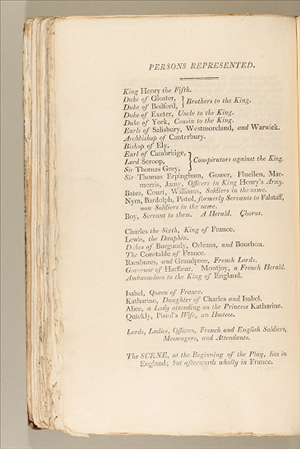 PERSONS REPRESENTED.
King Henry the Fifth.
Duke of Gloster, } Brothers to the King.
Duke of Bedford,
Duke of Exeter, Uncle to the King.
Duke of York, Cousin to the King.
Earls of Salisbury, Westmoreland, and Warwick.
Archbishop of Canterbury.
Bishop of Ely.
Earl of Cambridge,
Lord Scroop, } Conspirators against the King.
Sir Thomas Grey,
Sir Thomas Erpingham, Gower, Fluellen, Mac-
morris, Jamy, Officers in King Henry's Army.
Bates, Court, Williams, Soldiers in the same.
Nym, Bardolph, Pistol, formerly Servants to Falstaff,
now Soldiers in the same.
Boy, Servant to them. A Herald. Chorus.
Charles the Sixth, King of France.
Lewis, the Dauphin.
Dukes of Burgundy, Orleans, and Bourbon.
The Constable of France.
Rambures, and Grandpree, French Lords.
Governor of Harfleur. Montjoy, a French Herald.
Ambassadors to the King of England.
Isabel, Queen of France.
Katharine, Daughter of Charles and Isabel.
Alice, a Lady attending on the Princess Katharine.
Quickly, Pistol's Wife, an Hostess.
Lords, Ladies, Officers, French and English Soldiers,
Messengers, and Attendants.
The SCENE, at the Beginning of the Play, lies in
England; but afterwards wholly in France.